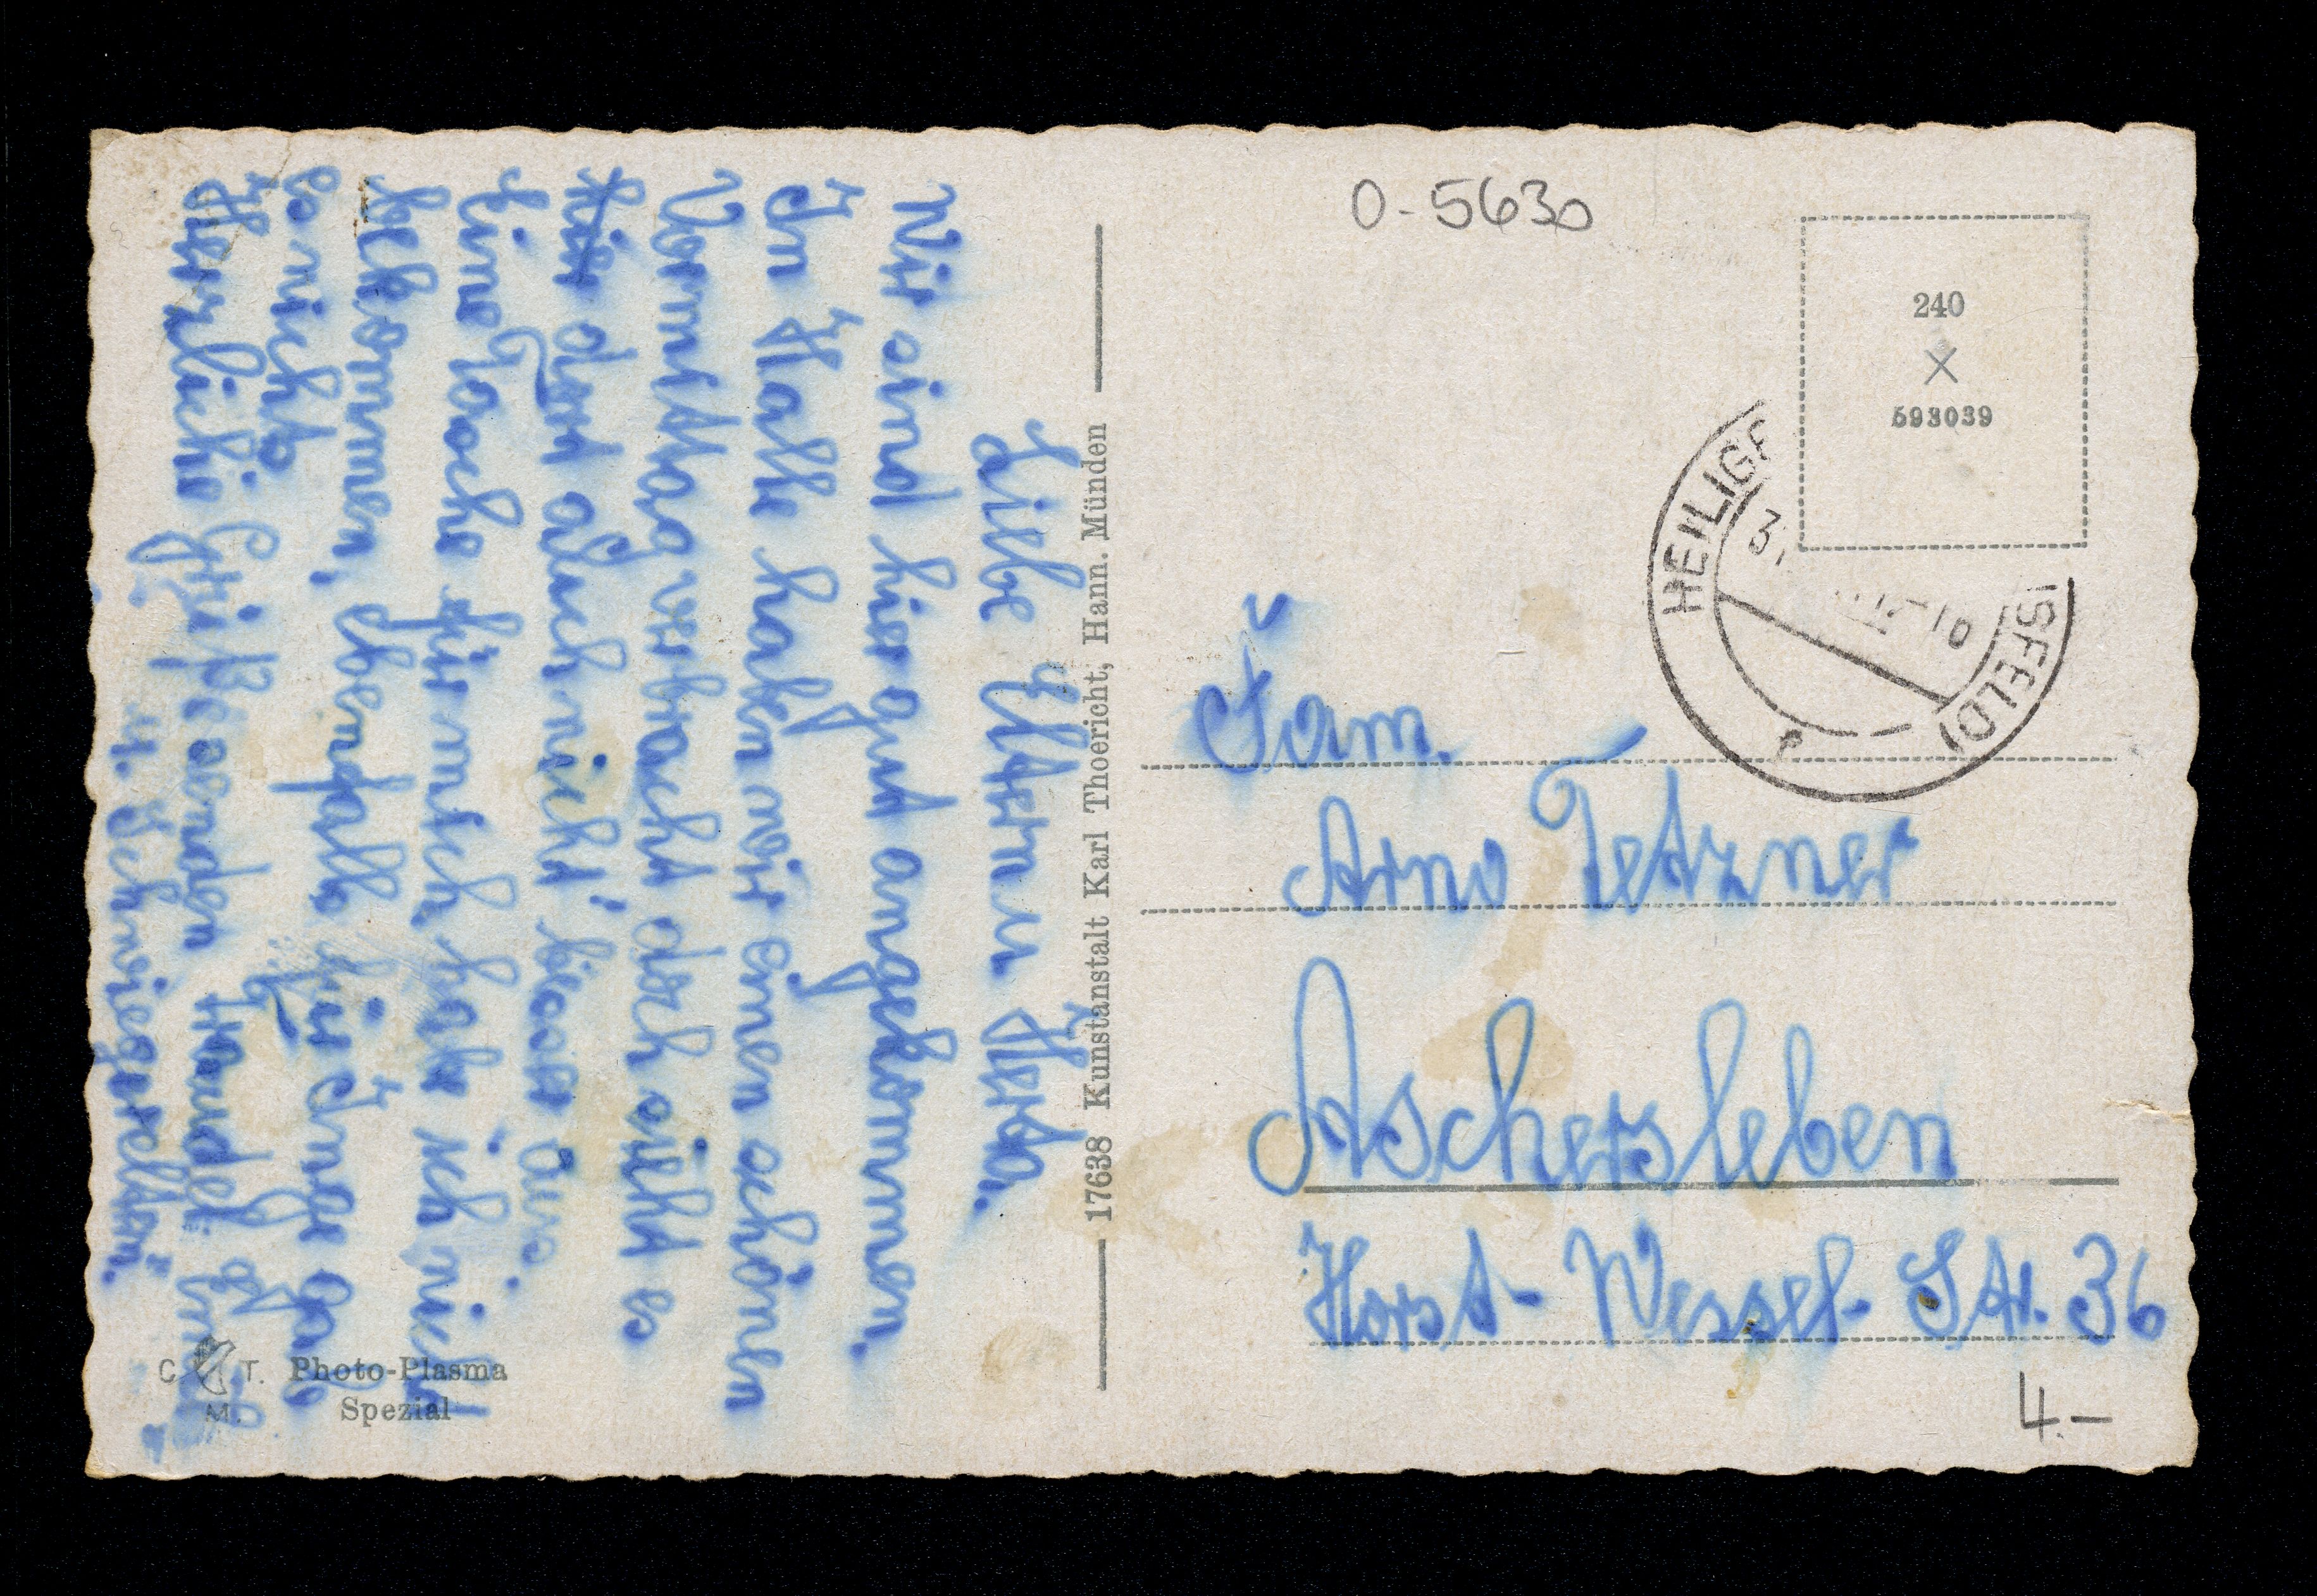 Liebe Eltern u Herta.
Wir sind hier gut angekommen.
In Halle haben wir einen schönen
Vormittag verbracht doch sieht es
hier dort auch nicht besser aus.
Eine Tasche für mich habe ich nicht
bekommen, ebenfalls für Inge gab
es nichts.
Herzliche Grüße senden Traudel
u. Schwiegereltern.
C T. M.
Photo-Plasma
Spezial
17638 Kunstanstalt Karl Thoericht, Hann. Münden
0-5630
240
X
593039
HEILIGE ISFELD)
3.
10
Fam.
Arno Tetzner
Aschersleben
Horst-Wessel-Str. 36
4.-